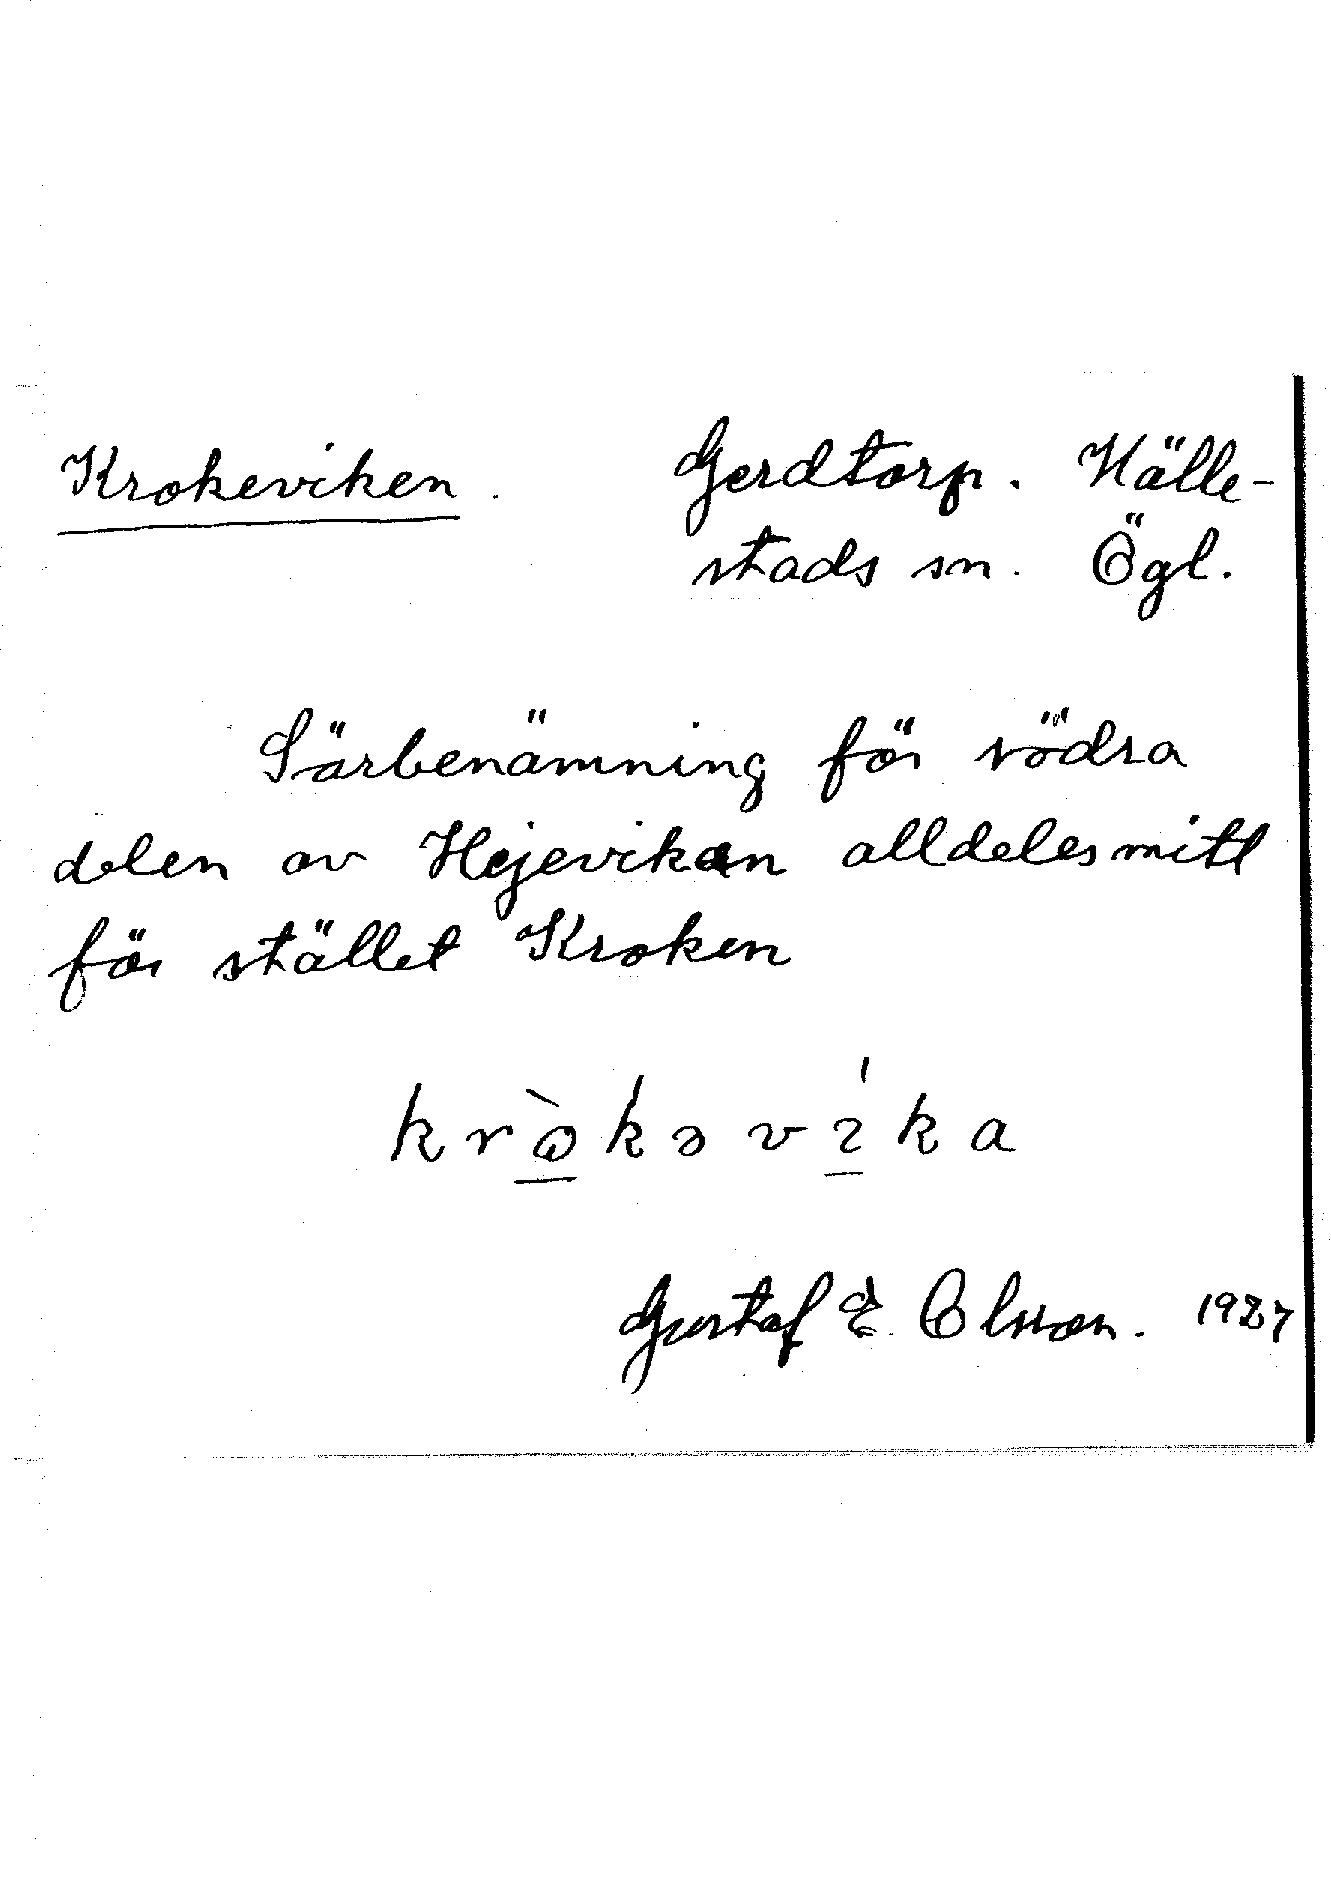 Krokeviken. Gerdtorp. Hälle-
stads sn. Ögl.
Särbenämning för södra
delen av Hejeviken alldeles mitt
för stället Kroken
krò̱kəvı̱́ka
Gustaf E. Olsson. 1927